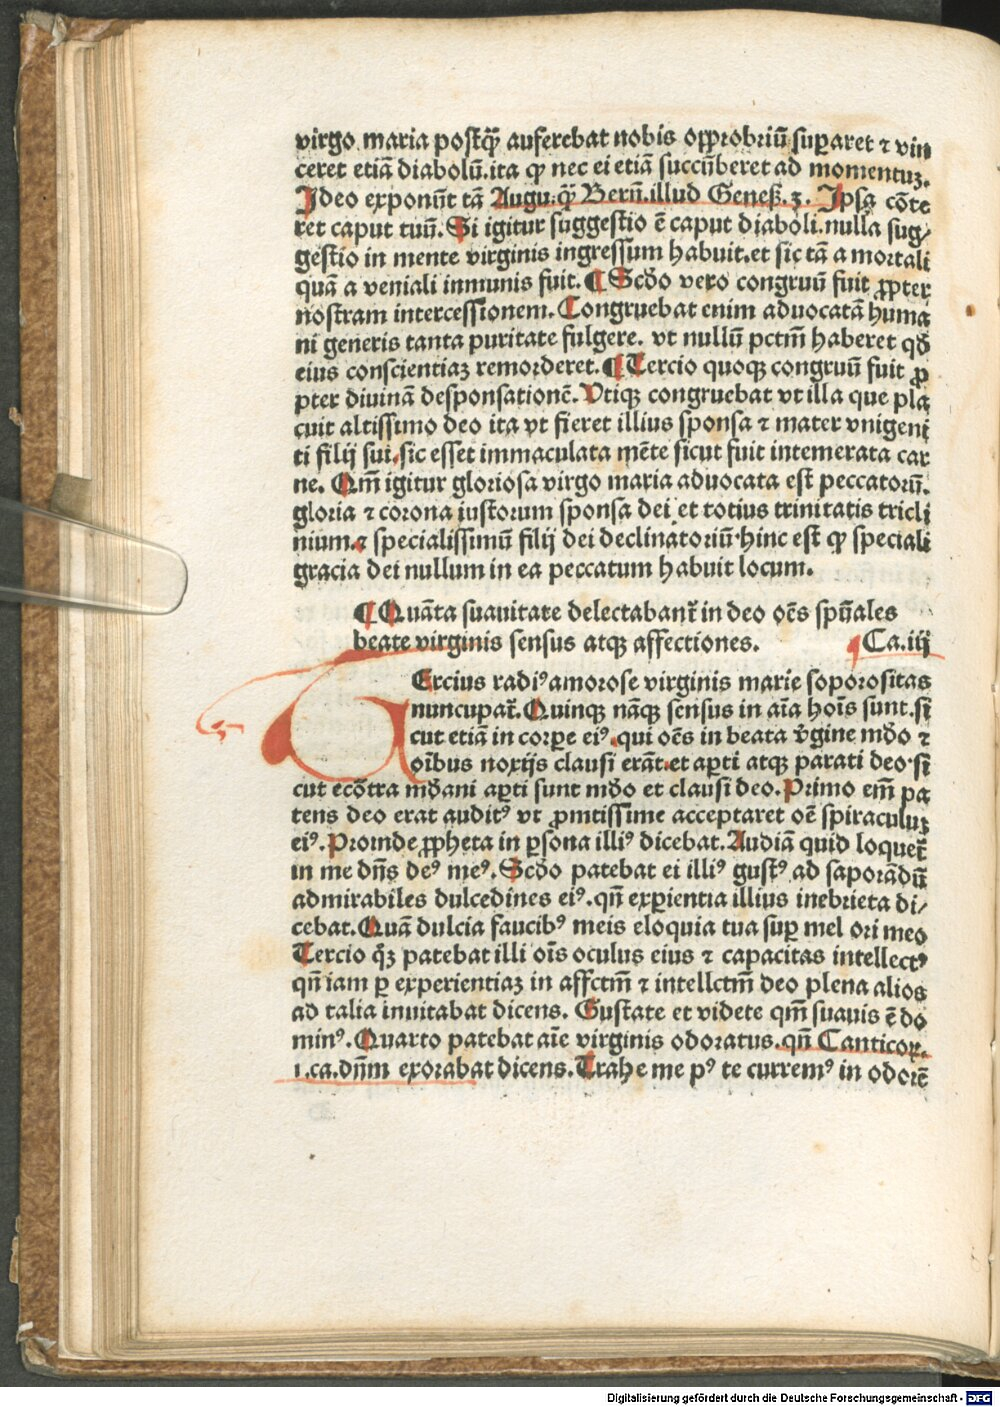 virgo maria postꝙ̃ auferebat nobis opprobriũ suꝑaret ⁊ vin
ceret etiã diabolũ.ita ꝙ nec ei etiã succũberet ad momentuꝫ.
Ideo exponũt tã Augu.q̃ Berñ.illud Geneß.3. Ipsa cõte
ret caput tuũ.Si igitur suggestio ẽ caput diaboli.nulla sug/
gestio in mente virginis ingressum habuit.et sic tã a mortali
quã a veniali inmunis fuit.¶ Scđo vero congruũ fuit ꝓpter
nostram intercessionem.Congruebat enim aduocatã huma
ni generis tanta puritate fulgere. vt nullũ pctm̃ haberet qđ
eius conscientiaꝫ remorderet.¶ Tercio quoqꝫ congruũ fuit ꝓ
pter diuinã desponsationẽ.Vtiqꝫ congruebat vt illa que pla
cuit altissimo deo ita vt fieret illius sponsa ⁊ mater vnigeni
ti filij sui.sic esset immaculata mẽte sicut fuit intemerata car
ne. Qm̃ igitur gloriosa virgo maria aduocata est peccatorũ.
gloria ⁊ corona iustorum sponsa dei et totius trinitatis tricli
nium.⁊ specialissimũ filij dei declinatoriũ·hinc est ꝙ speciali
gracia dei nullum in ea peccatum habuit locum.
¶ Quãta suauitate delectabant᷑ in deo oẽs spũales
beate virginis sensus atqꝫ affectiones. ¶ Ca.iij
TErcius radiꝰ amorose virginis marie soporositas
nuncupat᷑.Quinqꝫ nãqꝫ sensus in aĩa hoĩs sunt.si
cut etiã in corꝑe eiꝰ.qui oẽs in beata v̾gine mđo ⁊
oĩbus noxijs clausi erãt.et aꝑti atqꝫ parati deo·si
cut ecõtra mđani aꝑti sunt mđo et clausi deo.Primo em̃ pa
tens deo erat auditꝰ vt ꝓmtissime acceptaret oẽ spiraculuꝫ
eiꝰ.Proinde ꝓpheta in ꝑsona illiꝰ dicebat.Audiã quid loquet᷑
in me dñs deꝰ meꝰ.Scđo patebat ei illiꝰ gustꝰ ad saporãdũ
admirabiles dulcedines eiꝰ.qñ exꝑientia illius inebrieta di/
cebat.Quã dulcia faucibꝰ meis eloquia tua suꝑ mel ori meo
Tercio q̃ꝫ patebat illi oĩs oculus eius ⁊ capacitas intellectꝰ
qñ iam ꝑ experientiaꝫ in affctm̃ ⁊ intellctm̃ deo plena alios
ad talia inuitabat dicens. Gustate et videte qm̃ suauis ẽ do
minꝰ.Quarto patebat aĩe virginis odoratus.qñ Canticoꝝ.
1.ca.dñm exorabat dicens.Trahe me pꝰ te curremꝰ in odorẽ
Digitalisierung gefördert durch die Deutsche Forschungsgemeinschaft - DFG